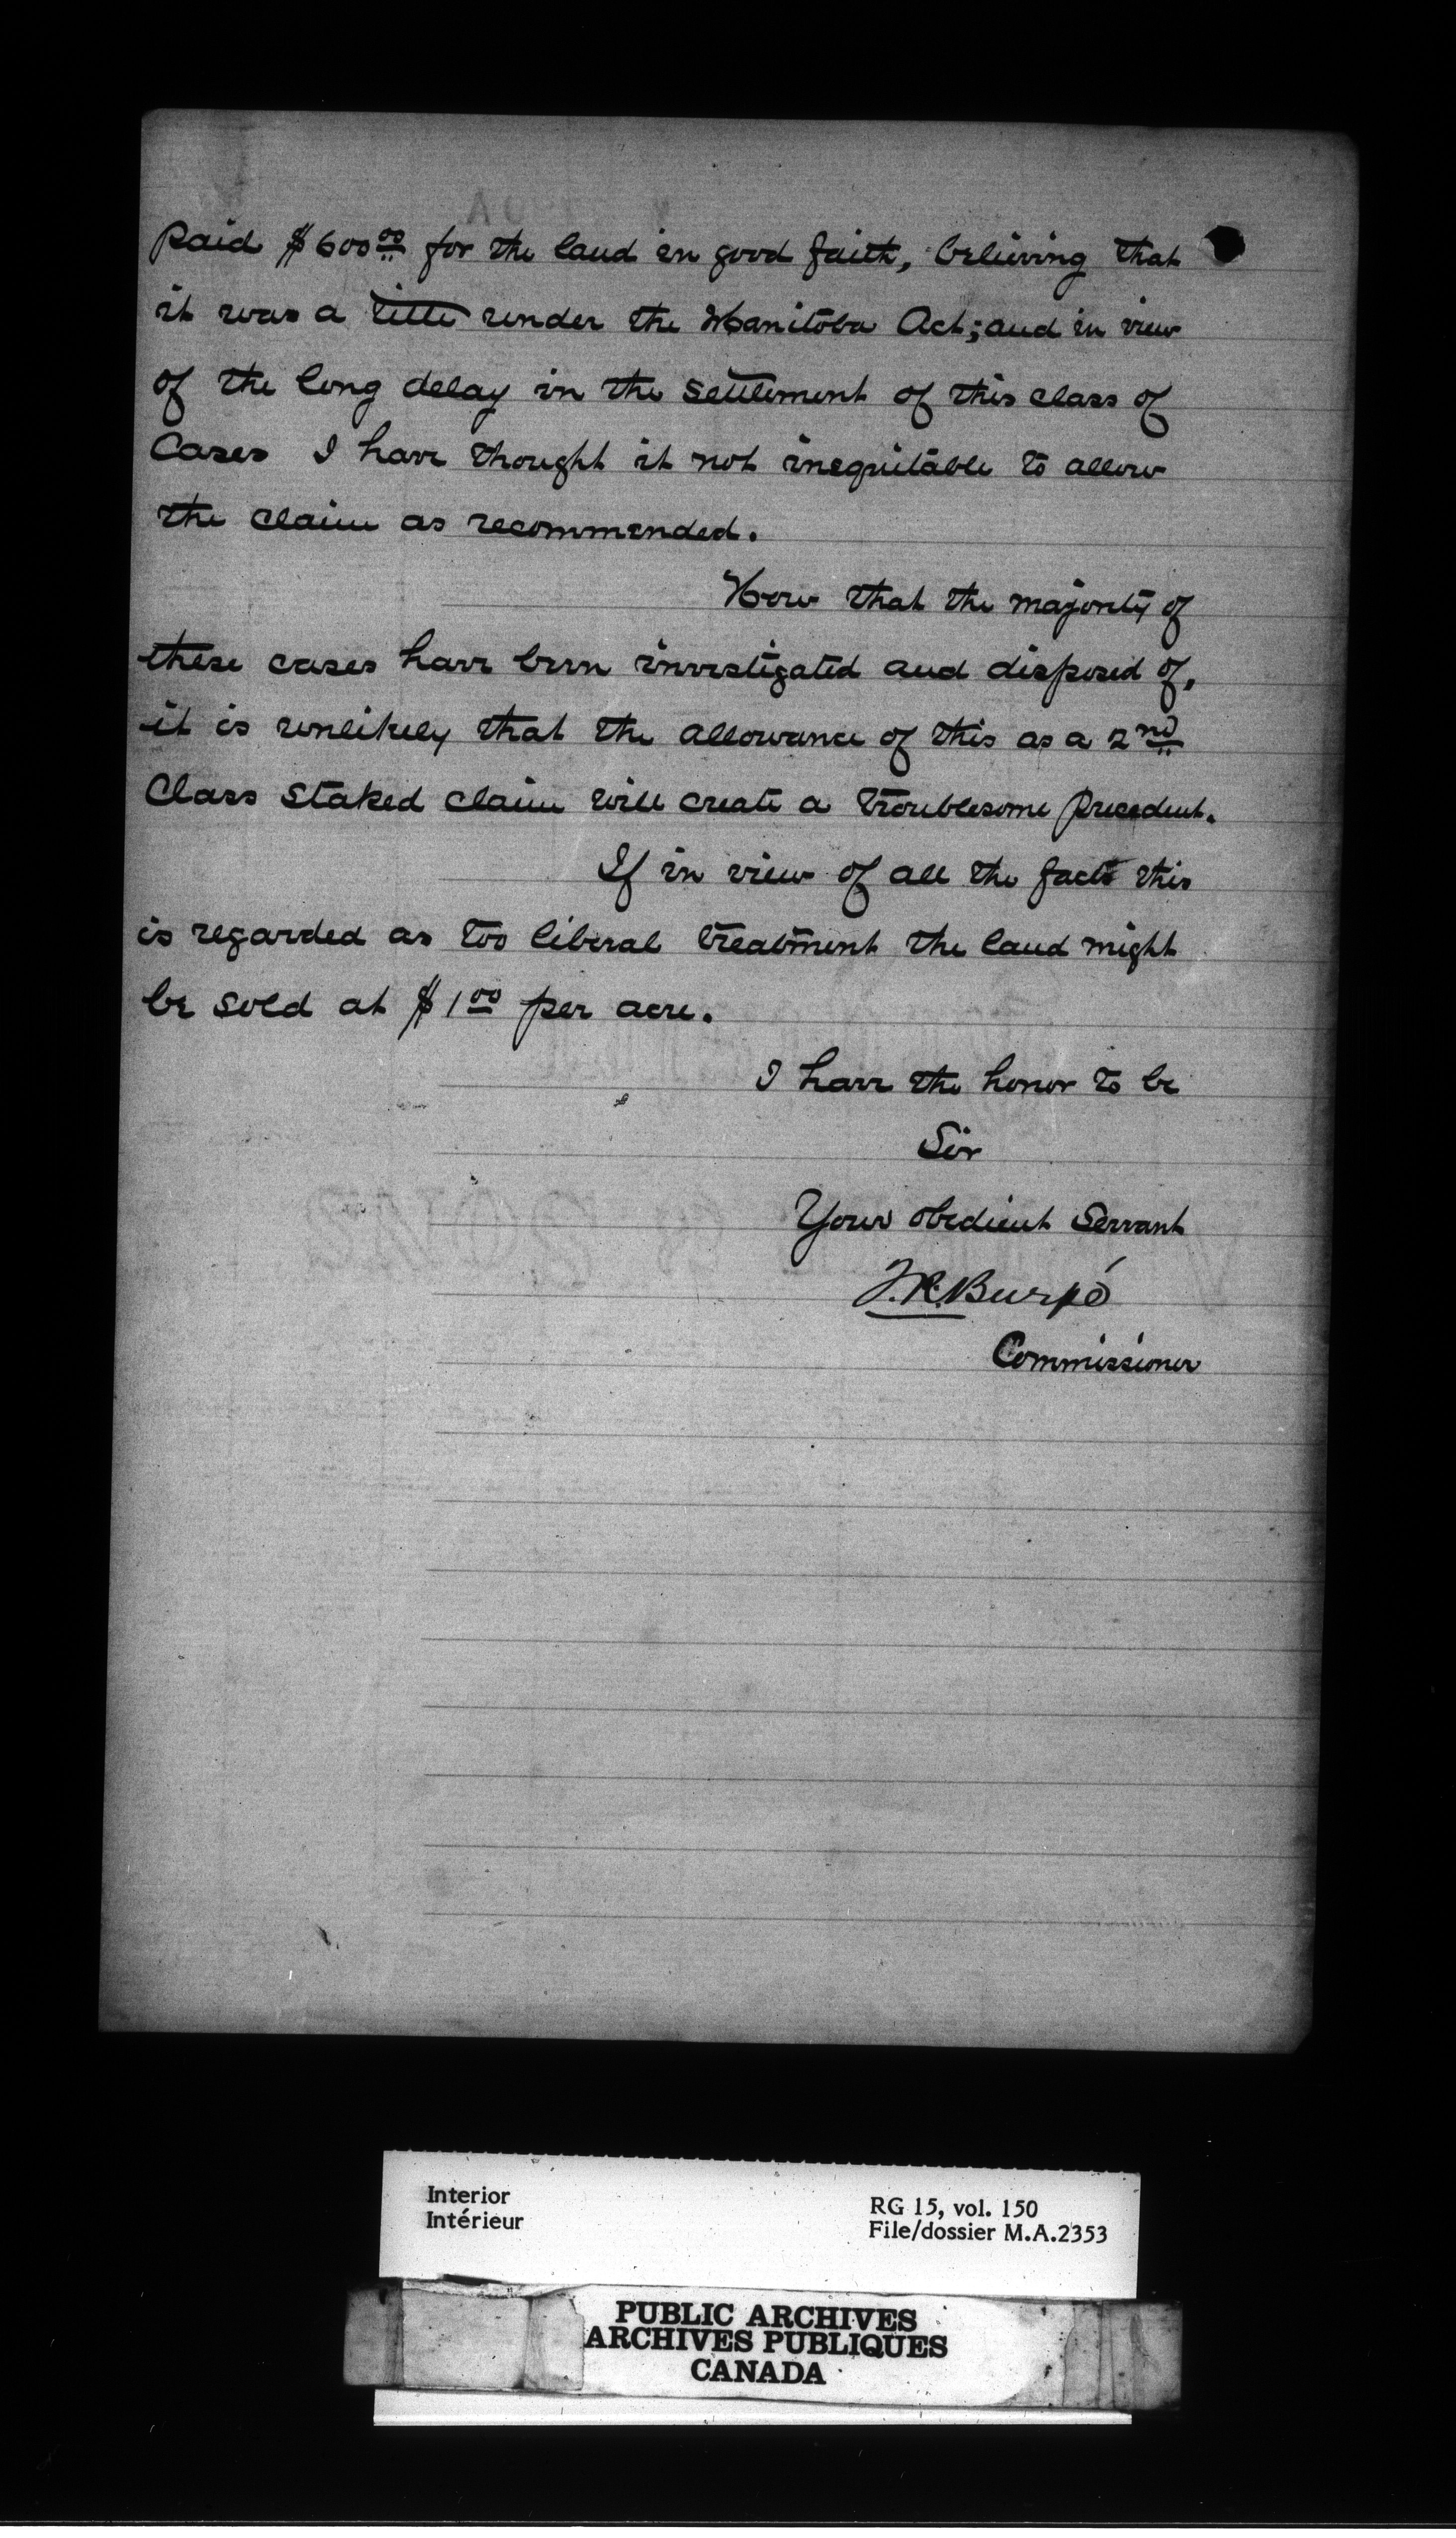 Paid $600.00 for the land in good faith, believing that
it was a title under the Manitoba Act; and in view
of the long delay in the settlement of this class of
Cases I have thought it not inequitable to allow
the claim as recommended.
Now that the majority of
these cases have been investigated and disposed of,
it is unlikely that the allowance of this as a 2nd
Class Staked claim will create a troublesome precedent.
If in view of all the facts this
is regarded as too liberal treatment the land might
be sold at $1.00 per acre.
I have the honor to be
Sir
Your obedient Servant
T.R. Burpé
Commissioner
Interior
Intérieur
RG 15, vol. 150
File/dossier M.A.2353
PUBLIC ARCHIVES
ARCHIVES PUBLIQUES
CANADA